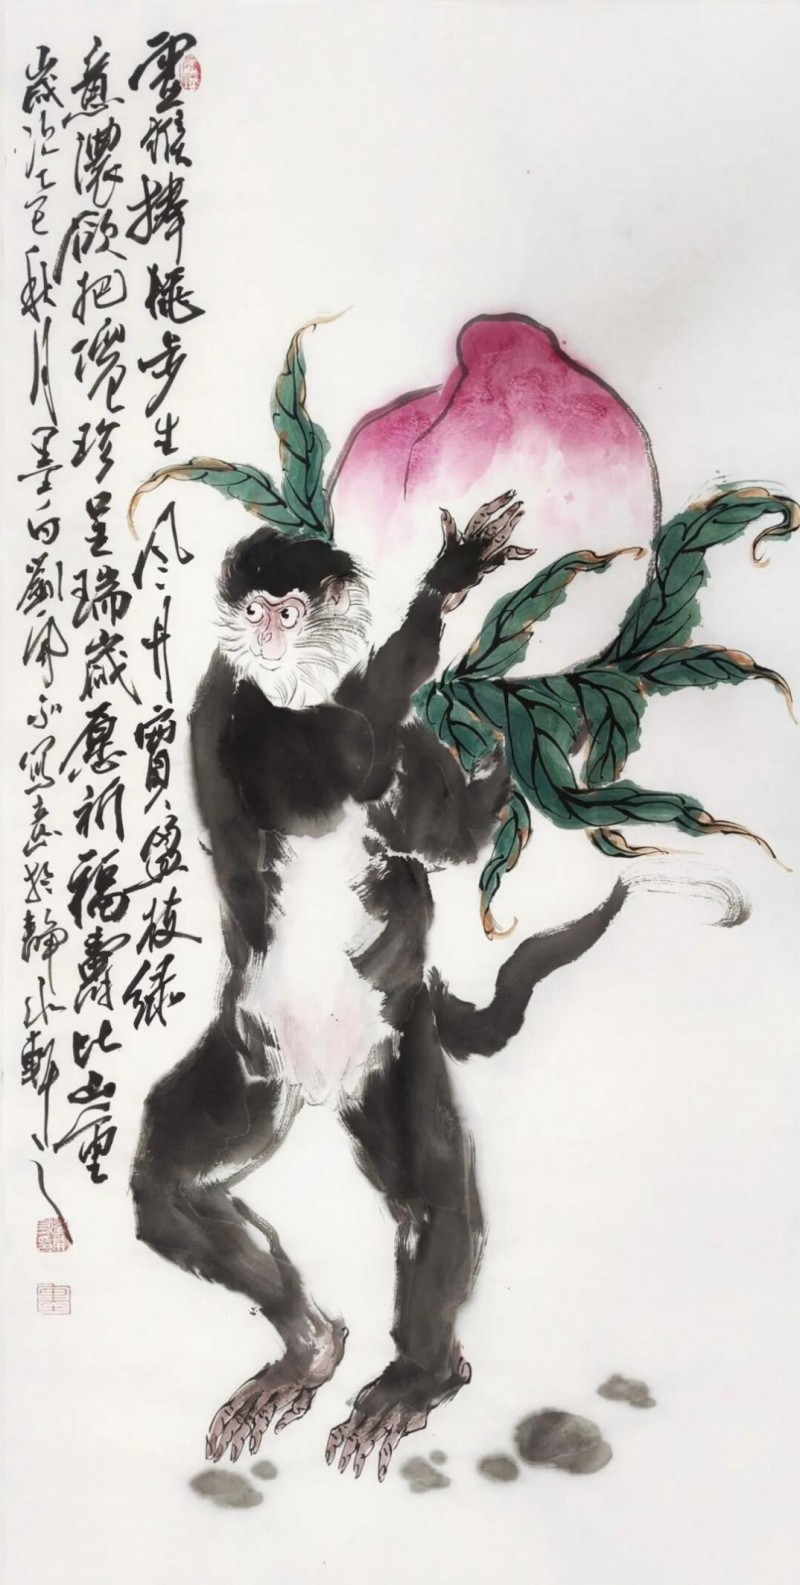 靈猴捧桃步生风丹實盈枝綠
意濃欲把瓊珍呈瑞歲愿祈福壽比山重
歲次乙巳秋月墨白劉寫意於靜水軒